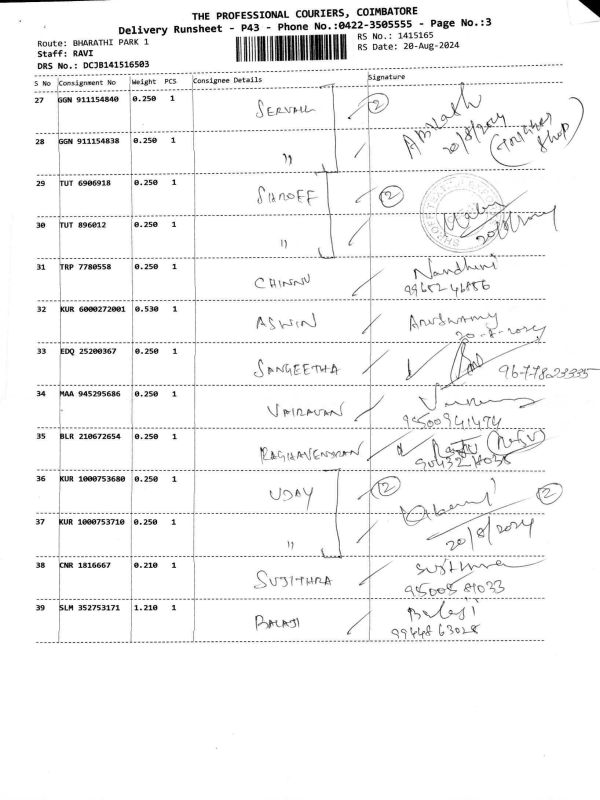 THE PROFESSIONAL COURIERS, COIMBATORE
Delivery Runsheet - P43 - Phone No.:0422-3505555 - Page No.:3
Route: BHARATHI PARK 1
Staff: RAVI
DRS No.: DCJB141516503
RS No.: 1415165
RS Date: 20-Aug-2024
S No Consignment No Weight PCS Consignee Details Signature
27 GGN 911154840 0.250 1 SERVALL 2 Abilash
20/8/2024
28 GGN 911154838 0.250 1 〃 Shop
29 TUT 6906918 0.250 1 SHROFF 2
30 TUT 896012 0.250 1 〃 20/8/2024
31 TRP 7780558 0.250 1 CHINNU Nandhini
99652 46856
32 KUR 6000272001 0.530 1 ASWIN Aruswamy
20-8-2024
33 EDQ 25200367 0.250 1 SANGEETHA 9677823335
34 MAA 945295686 0.250 1 VAIRAVAN
9500941474
35 BLR 210672654 0.250 1 RAGHAVENDRAN
36 KUR 1000753680 0.250 1 UDAY 2 2
37 KUR 1000753710 0.250 1 〃 20/8/2024
38 CNR 1816667 0.210 1 SUJITHRA
39 SLM 352753171 1.210 1 BALAJI Balaji
99448 63028